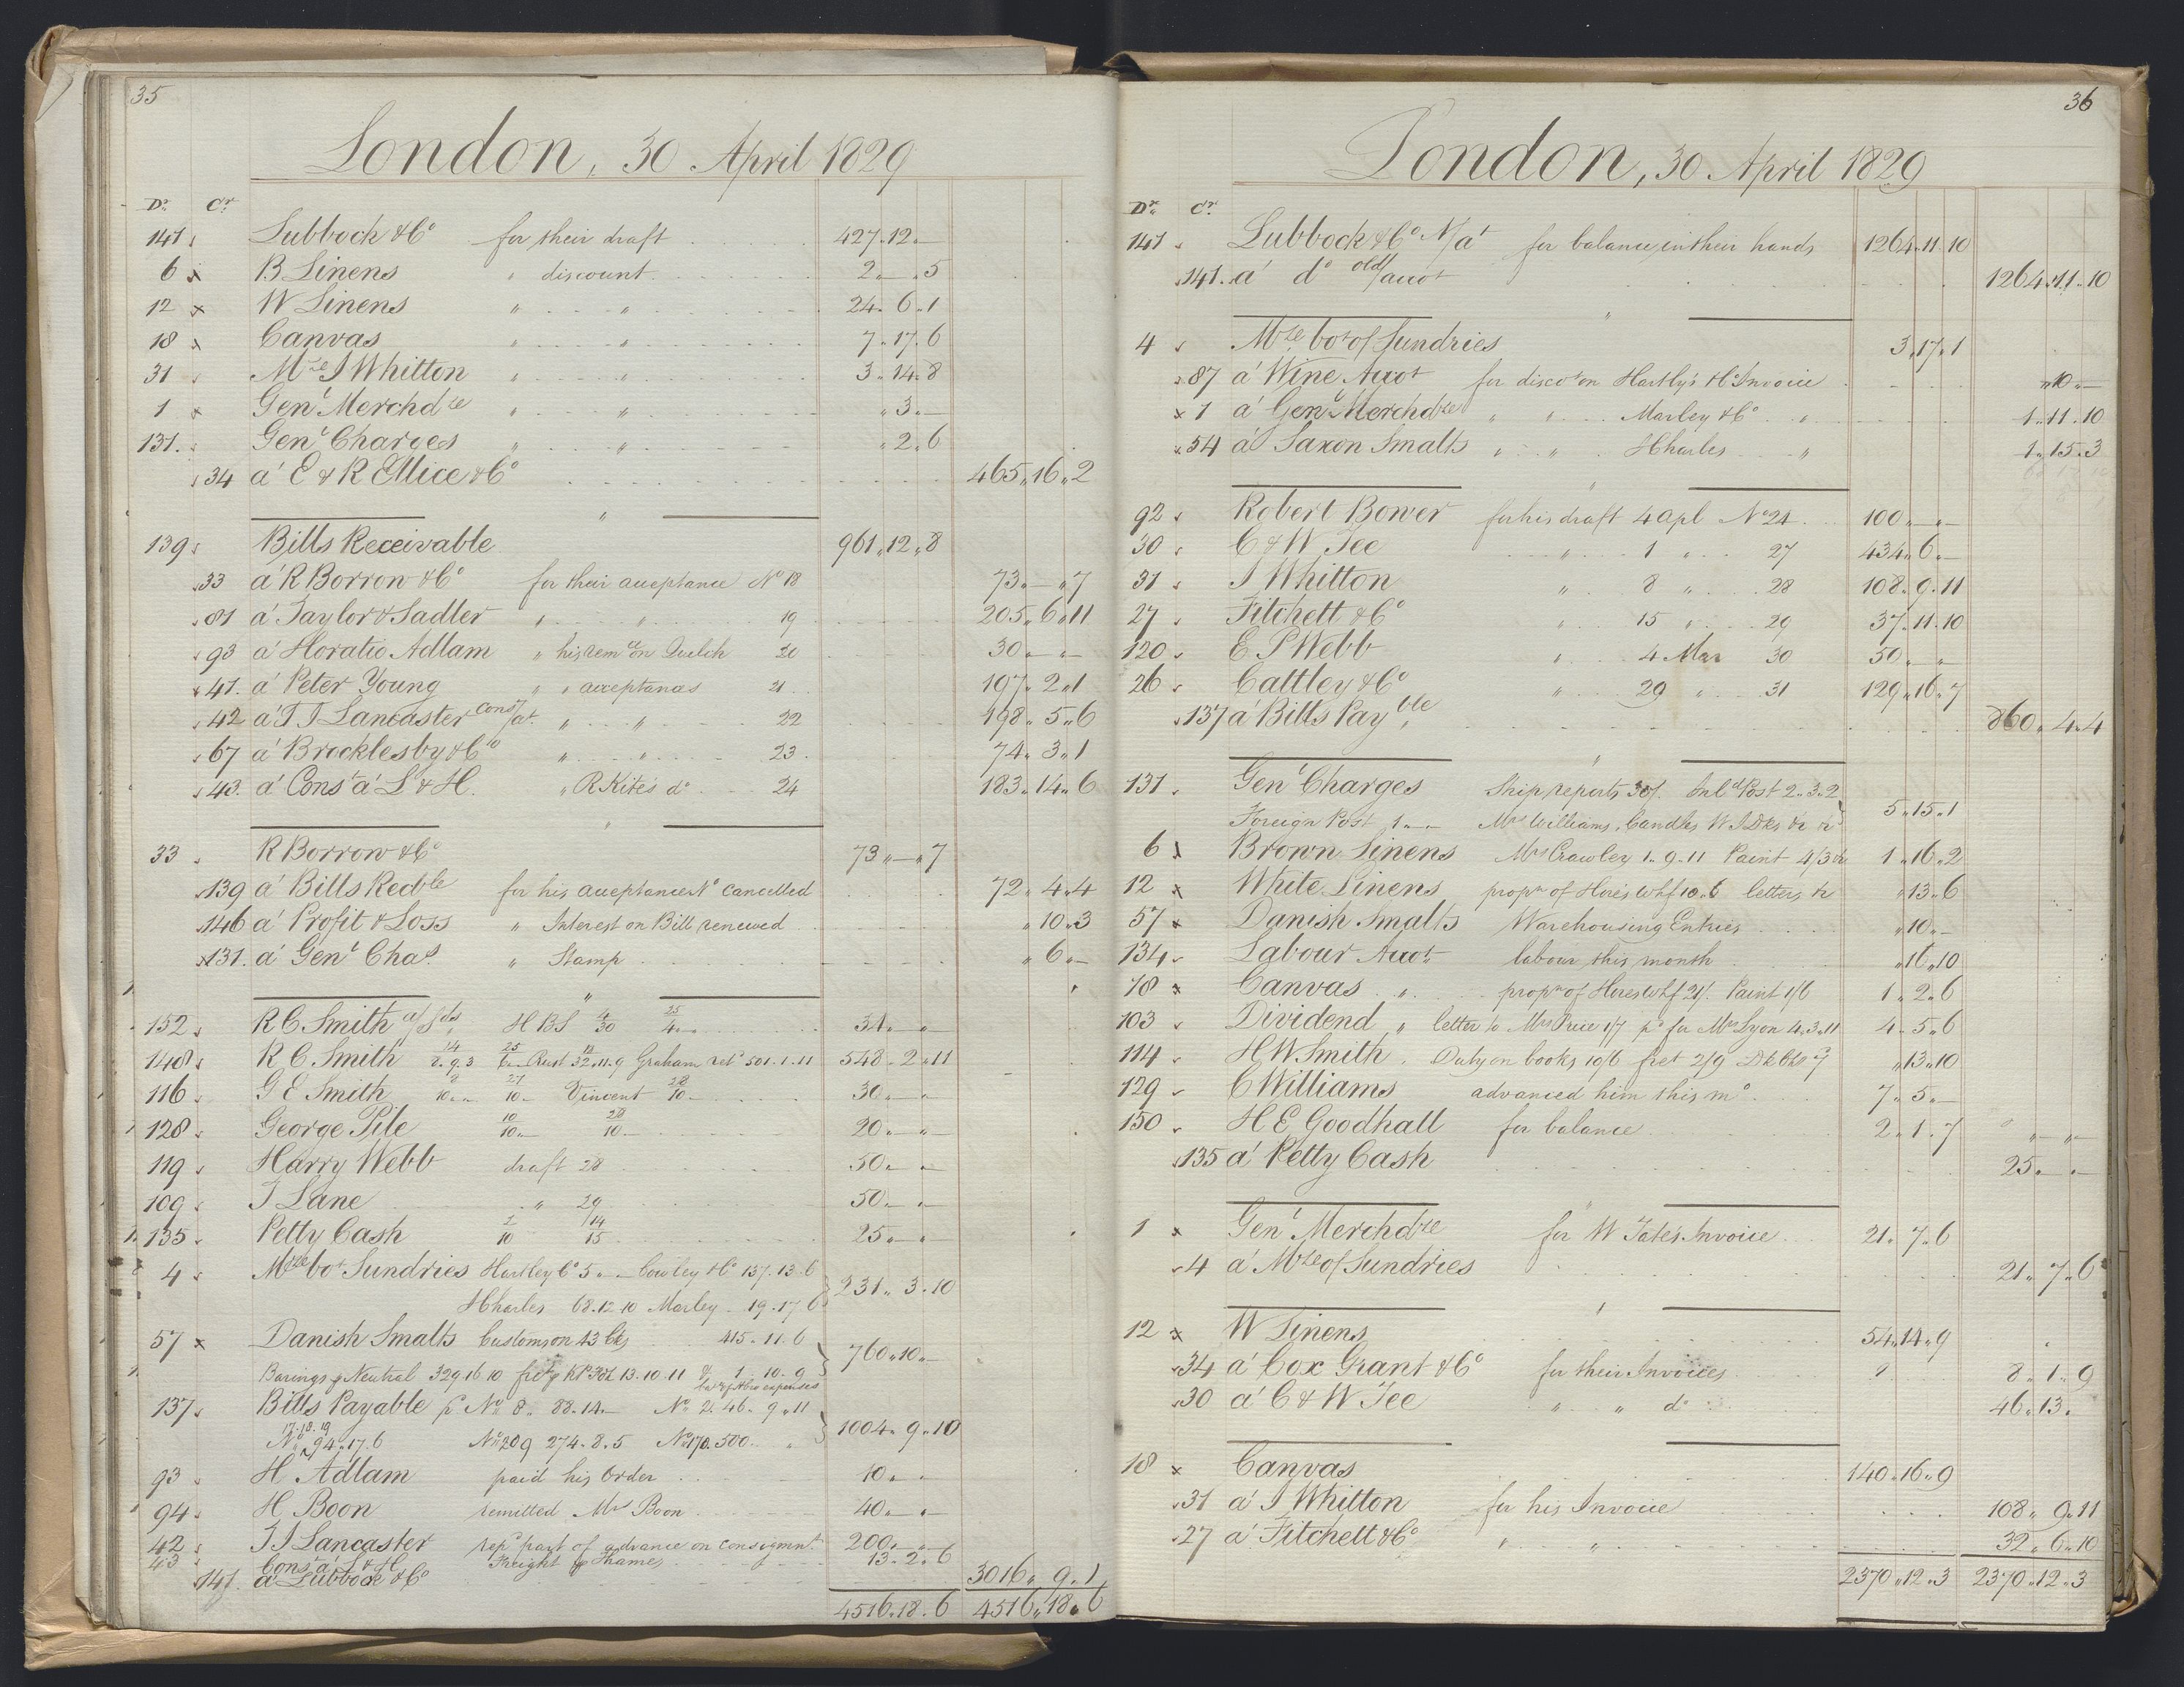 35
London, 30 April 1829
Dr. Cr.
141 Lubbock & Co for their draft 427.12.—
6 x B Linens " discount 2.—.5
12 x W Linens " " 24.6.1
18 x Canvas " " 7.17.6
31 Mze J Whitton " " 3.14.8
1 x Genl Merchdze " " " 3.—
131. Genl Charges " " " 2.6
34 a' E & R Ellice & Co 465.16.2
139 Bills Receivable 961.12.8
33 a' R Borrow & Co for their acceptance No 18 73.—.7
81 a' Taylor & Sadler " " 19 205.6.11
93 a' Horatio Adlam " his rem on Quelch 20 30.—.—
41. a' Peter Young " " acceptances 21 197.2.1
42 a' T J Lancaster Cons/at. " " 22 198.5.6
67 a' Brocklesby & Co " " 23 74.3.1
43. a' Cons a' L & H. " R Kite's do 24 183.14.6
33 R Borrow & Co 73.—.7
139 a' Bills Recble for his acceptance No cancelled 72.4.4
146 a' Profit & Loss " Interest on Bill renewed " 10.3
131. a' Genl Chas. " Stamp " 6.—
152 R C Smith H B S 4/30 25/4 34.—.—
148 R C Smith 14/8.9.3 25/ Rust 32.11.9 Graham ret 501.1.11 548.2.11
116 G E Smith 8/10.— 21/10.— Vincent 28/10.— 30.—.—
128 George Pile 10/10.— 28/10.— 20.—.—
119 Harry Webb draft 28 50.—.—
109 J Lane " 29 50.—.—
135 Petty Cash 2/10 14/15 25.—.—
4 Mze bot Sundries Hartley Co 5.—.— Cowley & Co 137.13.6
H Charles 68.12.10 Marley 19.17.6 231.3.10
57 x Danish Smalts Customs on 43 Cks 415.11.6
Barings p Neutral 329.16.10 13.10.11 & 1.10.9 760.10.—
bal of expenses
137 Bills Payable p No 8. 88.14.— No 2. 46.9.11
17.18.19
No 94.17.6 No 209 274.8.5 No 170.500.. 1004.9.10
93 H. Adlam paid his order 10.—.—
94 H Boon remitted Mrs Boon 40.—.—
42 T J Lancaster rep part of advance on consignmt 200.—.—
43 Cons a' L & H Freight p Thames 13.2.6
141. a' Lubbock & Co 3016.9.1
4516.18.6 4516.18.6
36
London, 30 April 1829
Dr. Cr.
141 Lubbock & Co N/at for balance in their hands 1264.11.10
141. a' do old/accot 1264.11.10
4 Mze bot of Sundries 3.17.1
87 a' Wine Accot for discot on Hartly's & Co Invoice " 10.—
x 1 a' Genl Merchdze " " Marley & Co " 1.11.10
x 54 a' Saxon Smalts " " H Charles " 1.15.3
92 Robert Bower for his draft 4 Apl No 24 100.—.—
30 C & W Tee " 1 " 27 434.6.—
31 J Whitton " 8 " 28 108.9.11
27 Fitchett & Co " 15 " 29 37.11.10
120 E P Webb " 4 Mar 30 50.—.—
26 Cattley & Co " 29 " 31 129.16.7
137 a' Bills Payble 860.4.4
131 Genl Charges Ship reports 30/. Inld Post 2.3.2
Foreign Post 1.—.— Mrs Williams, Candles W I Dks &c &c 5.15.1
6 Brown Linens Mrs Crawley 1.9.11 Paint 4/3 &c 1.16.2
12 x White Linens propn of Hores Whf 10.6 letters &c " 13.6
57 x Danish Smalts Warehousing Entries " 10.—
134 Labour Accot labour this month " 16.10
18 x Canvas " propn of Hores Whf 21/. Paint 1/6 1.2.6
103 Dividend " letter to Mrs Price 1/7 pd for Mrs Lyon 4.3.11 4.5.6
114 H W Smith. Duty on books 10/6 fret 2/9 Dk Chs 7 " 13.10
129 C Williams advanced him this mo 7.5.—
150 H E Goodhall for balance 2.1.7
135 a' Petty Cash 25.—.—
1 x Genl Merchdze for W Tate's Invoice 21.7.6
4 a' Mze of Sundries 21.7.6
12 x W Linens 54.14.9
34 a' Cox Grant & Co for their Invoices 8.1.9
30 a' C & W Tee " " do 46.13.
18 x Canvas 140.16.9
31 a' J Whitton for his Invoice 108.9.11
27 a' Fitchett & Co " " 32.6.10
2370.12.3 2370.12.3